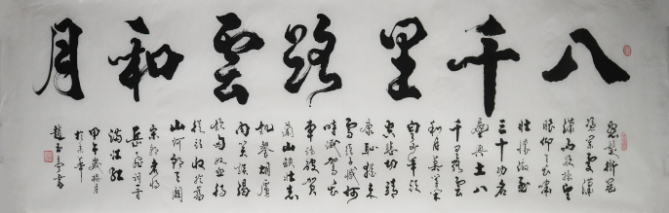 八千里路雲和月
怒髮衝冠
憑闌處瀟
瀟雨歇抬望
眼仰天長嘯
壯懷激烈
三十功名
塵與土八
千里路雲
和月莫等閒
白了少年頭
空悲切靖
康恥猶未
雪臣子恨何
時滅駕長
車踏破賀
蘭山缺壯志
飢餐胡虜
肉笑談渴
飲匈奴血待
從頭收拾舊
山河朝天闕
岳飛詞
滿江紅
甲午歲月
於京華
趙玉書